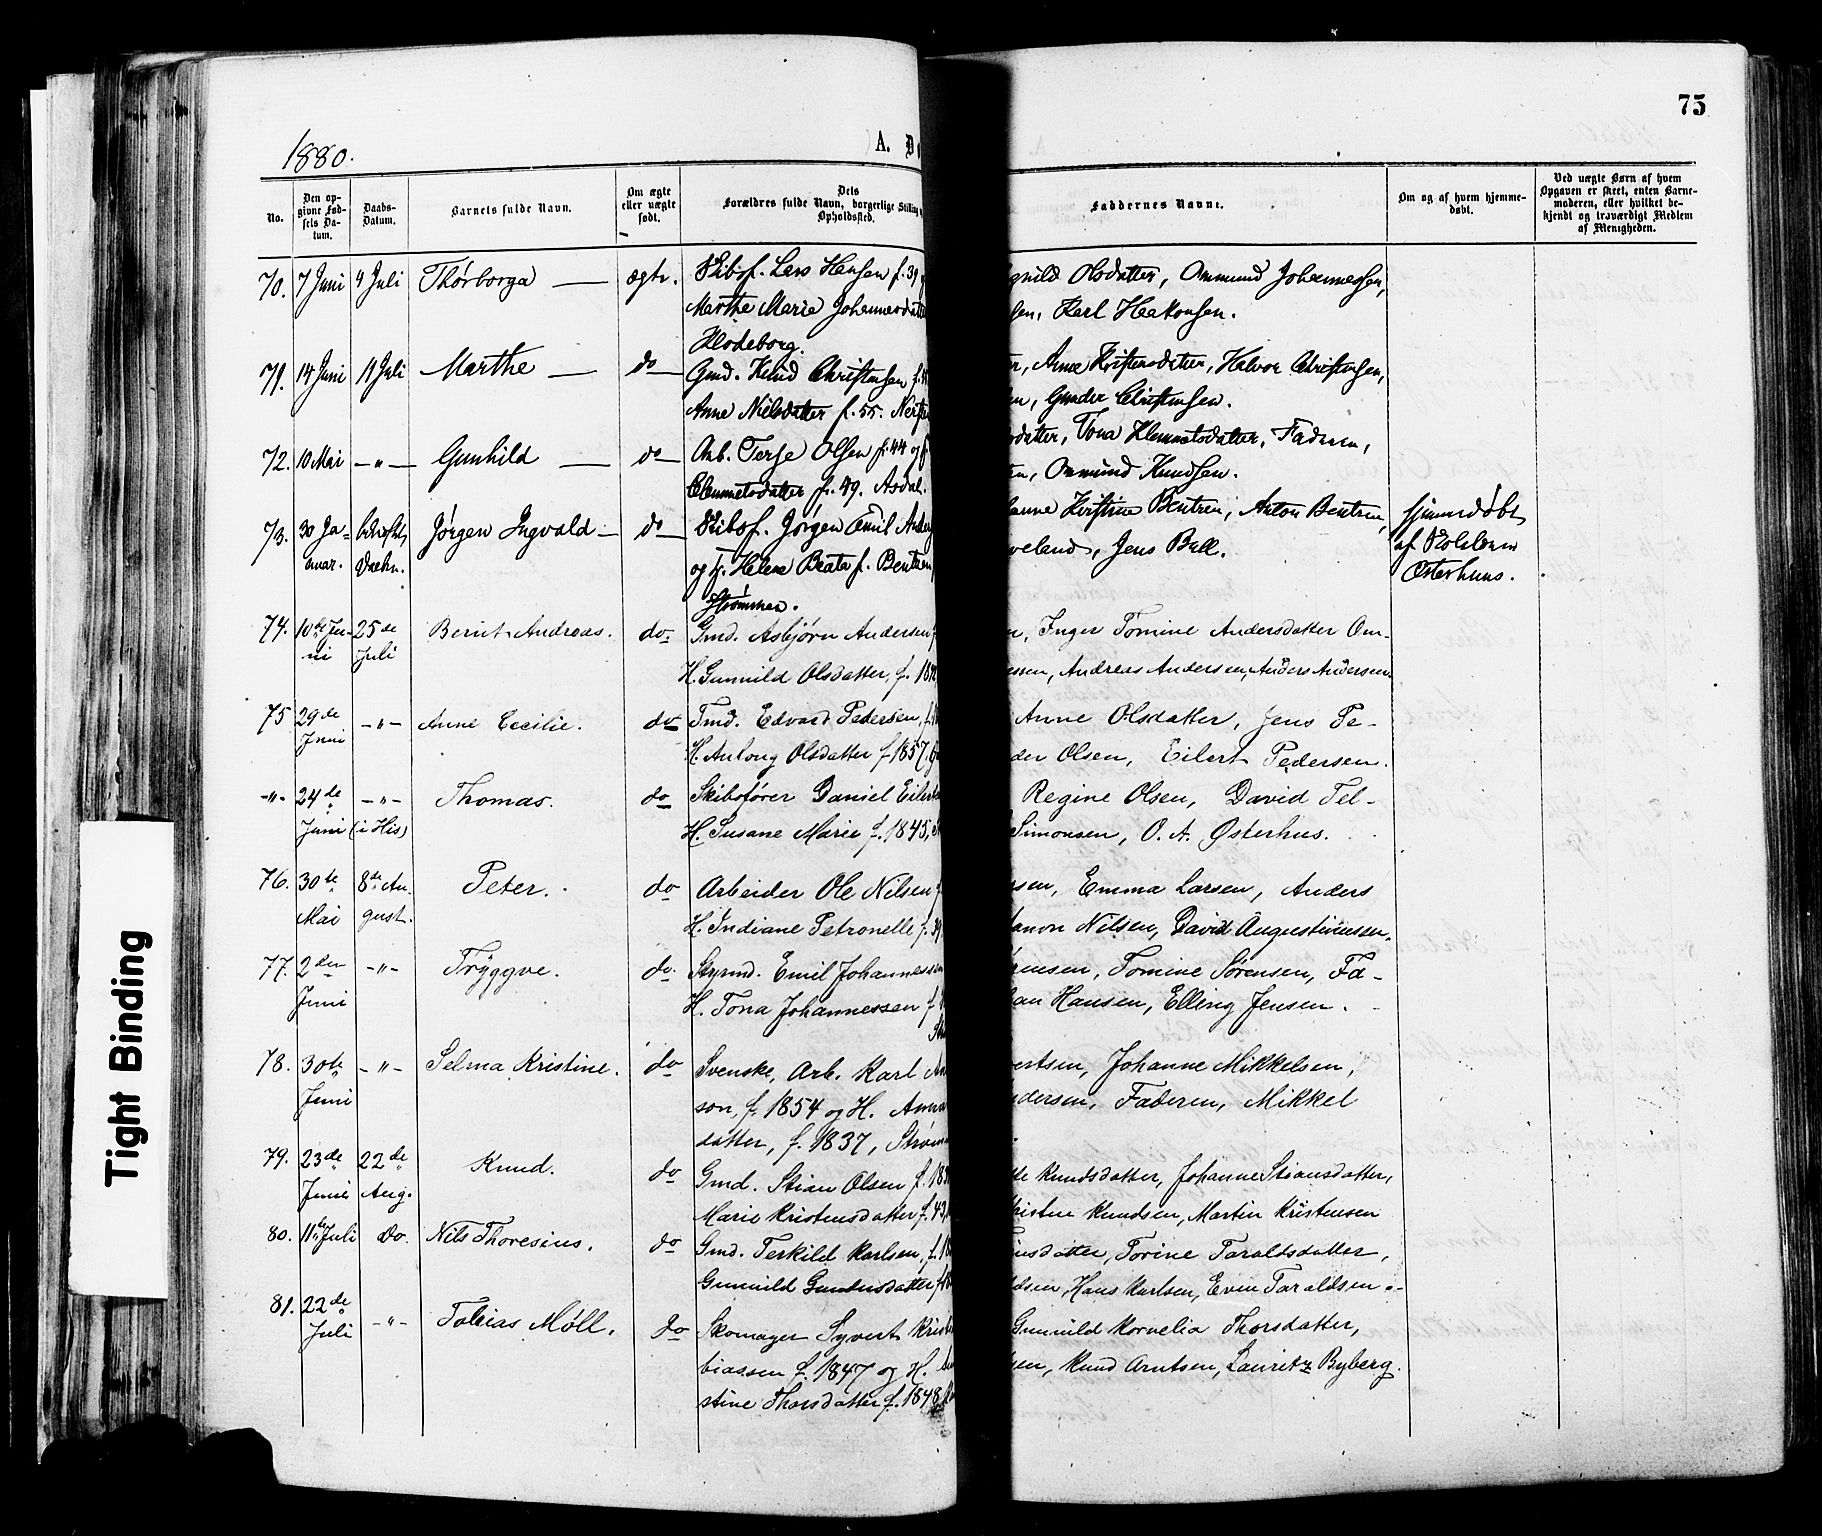 75
1880.
A. D
No.
Den op-
givne Fød-
sels Da-
tum.
Daabs-
Datum.
Barnets fulde Navn.
Om ægte
eller uægte
født.
Dets
Forældres fulde Navn, borgerlige Stilling
Opholdssted.
Faddernes Navne.
Om og af hvem hjemme-
døbt.
Ved uægte Børn af hvem
Opgaven er skeet, enten Barne-
moderen, eller hvilket be-
kjendt og troværdigt Medlem
af Menigheden.
70. 7 Juni 4 Juli Thorborga — ægte. Skibsf. Lars Hansen f. 39
Marthe Marie Johannesdatte
Flodeborg.
Olsdatter, Ommund Johannessen,
sen, Karl Haakonsen.
71. 14 Juni 11 Juli Marthe — do — Gmd. Knud Christensen f.
Anne Nielsdatter f. 55.
Anne Kristensdatter, Halvor Christensen,
en, Gunder Christensen.
72. 10 Mai — „ — Gunhild — do — Arb. Terje Olsen f. 44 og
Clemmetsdatter f. 49. Asdal.
datter, Tona Klemmetsdatter, Faderen,
en, Ommund Knudsen.
73. 30 Ja-
nuar. Jørgen Ingvald — do — Skibsf. Jørgen Emil Ander
og H. Helene Beata f. Bentzen
Strømmen.
anne Kristine Bentzen, Anton Bentzen,
veland, Jens Bull.
hjemmedøbt
af
Østerhuus.
74. 10de Ju-
ni 25de
Juli Bernt Andreas. do. Gmd. Asbjørn Andersen
H. Gunnild Olsdatter, f. 18
n, Inger Tomine Andersdatter Om-
ssen, Andreas Andersen, Anders Andersen.
75 29de
Juni -„- Anne Cecilie. do Tmd. Edvard Pedersen,
H. Anlong Olsdatter f 1857.
Anne Olsdatter, Jens Pe-
der Olsen, Eilert Pedersen.
-„- 24de
Juni -„-
(i His) Thomas. do Skibsfører Daniel Eilert
H. Susane Marie f. 1845,
Regine Olsen, David Tel-
Simonsen, O. A. Østerhus.
76. 30te
Mai 8de Au-
gust. Peter. do Arbeider Ole Nilsen
H. Indiane Petronelle f. 39
sen, Emma Larsen, Anders
Nilsen, David Augustinussen.
77. 2den
Juni -„- Tryggve. do. Styrmd. Emil Johannessen
H. Tona Johannessen f.
ensen, Tomine Sørensen, Fa-
an Hansen, Elling Jensen.
78. 30te
Juni -„- Selma Kristine. do Svenske, Arb. Karl An
son, f. 1854 og H. Anna
datter, f. 1837, Strøm
ertsen, Johanne Mikkelsen,
dersen, Faderen, Mikkel
79. 23de
Juni 22de
Aug. Knud. do Gmd. Stian Olsen f. 18
Marie Kristensdatter f. 43,
te Knudsdatter, Johanne Stiansdatter,
Kristen Knudsen, Martin Kristensen
80. 11te Juli do. Nils Thoresius. do Gmd. Terkild Karlsen, f. 18
Gunnild Gundersdatter
nsdatter, Torine Taraldsdatter,
dsen, Hans Karlsen, Even Taraldsen
81. 22de
Juli -„- Tobias Møll. do Skomager Syvert Krist
biassen f. 1847 og H.
stine Thorsdatter f. 1848
Gunnild Kornelia Thorsdatter,
sen, Knud Arntsen, Lauritz Byberg.
Tight Binding